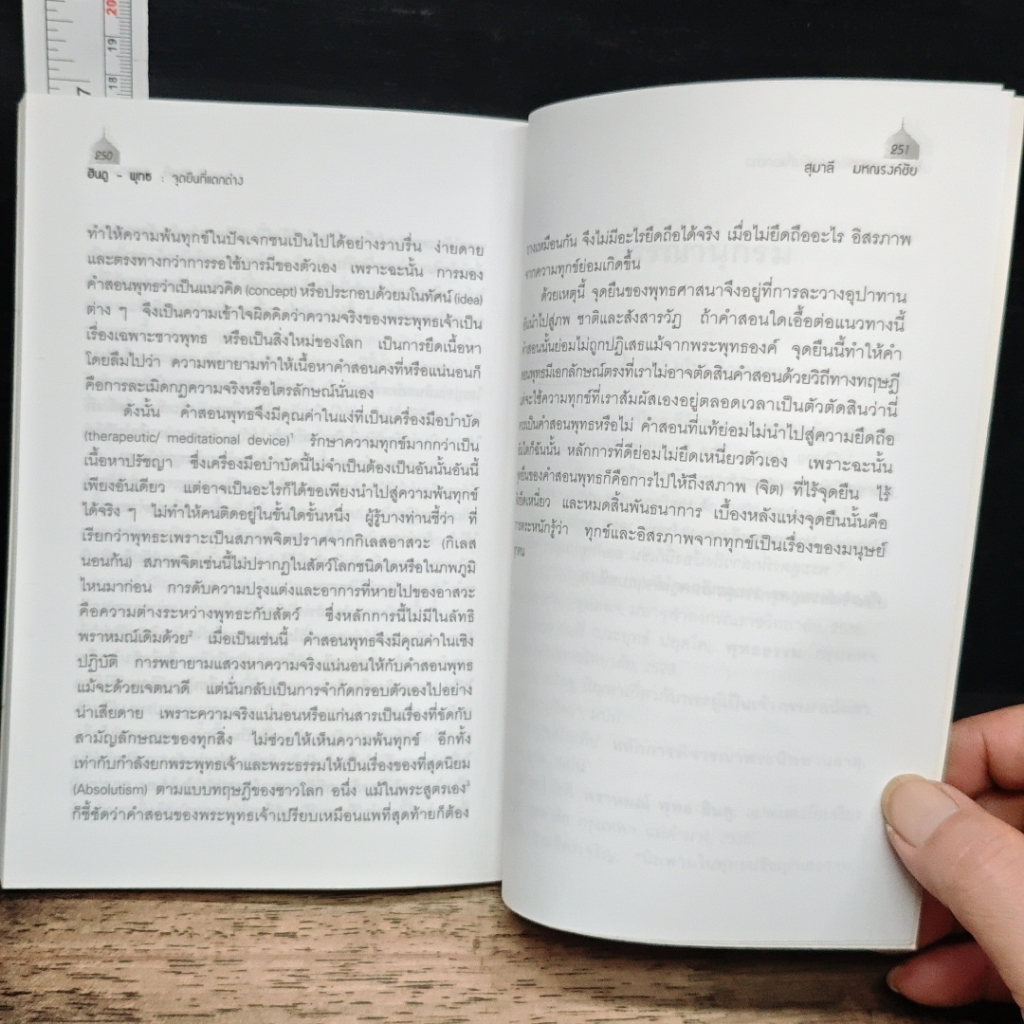 20
19
18
7
250
ฮินดู - พุทธ : จุดยืนที่แตกต่าง
ทำให้ความพ้นทุกข์ในปัจเจกชนเป็นไปได้อย่างราบรื่น ง่ายดาย
และตรงทางกว่าการรอใช้บารมีของตัวเอง เพราะฉะนั้น การมอง
คำสอนพุทธว่าเป็นแนวคิด (concept) หรือประกอบด้วยมโนทัศน์ (idea)
ต่าง ๆ จึงเป็นความเข้าใจผิดคิดว่าความจริงของพระพุทธเจ้าเป็น
เรื่องเฉพาะชาวพุทธ หรือเป็นสิ่งใหม่ของโลก เป็นการยึดเนื้อหา
โดยลืมไปว่า ความพยายามทำให้เนื้อหาคำสอนคงที่หรือแน่นอนก็
คือการละเมิดกฎความจริงหรือไตรลักษณ์นั่นเอง
ดังนั้น คำสอนพุทธจึงมีคุณค่าในแง่ที่เป็นเครื่องมือบำบัด
(therapeutic/ meditational device)¹ รักษาความทุกข์มากกว่าเป็น
เนื้อหาปรัชญา ซึ่งเครื่องมือบำบัดนี้ไม่จำเป็นต้องเป็นอันนั้นอันนี้
เพียงอันเดียว แต่อาจเป็นอะไรก็ได้ขอเพียงนำไปสู่ความพ้นทุกข์
ได้จริง ๆ ไม่ทำให้คนติดอยู่ในขั้นใดขั้นหนึ่ง ผู้รู้บางท่านชี้ว่า ที่
เรียกว่าพุทธะเพราะเป็นสภาพจิตปราศจากกิเลสอาสวะ (กิเลส
นอนก้น) สภาพจิตเช่นนี้ไม่ปรากฏในสัตว์โลกชนิดใดหรือในภพภูมิ
ไหนมาก่อน การดับความปรุงแต่งและอาการที่หายไปของอาสวะ
คือความต่างระหว่างพุทธะกับสัตว์ ซึ่งหลักการนี้ไม่มีในลัทธิ
พราหมณ์เดิมด้วย² เมื่อเป็นเช่นนี้ คำสอนพุทธจึงมีคุณค่าในเชิง
ปฏิบัติ การพยายามแสวงหาความจริงแน่นอนให้กับคำสอนพุทธ
แม้จะด้วยเจตนาดี แต่นั่นกลับเป็นการจำกัดกรอบตัวเองไปอย่าง
น่าเสียดาย เพราะความจริงแน่นอนหรือแก่นสารเป็นเรื่องที่ขัดกับ
สามัญลักษณะของทุกสิ่ง ไม่ช่วยให้เห็นความพ้นทุกข์ อีกทั้ง
เท่ากับกำลังยกพระพุทธเจ้าและพระธรรมให้เป็นเรื่องของที่สุดนิยม
(Absolutism) ตามแบบทฤษฎีของชาวโลก อนึ่ง แม้ในพระสูตรเอง³
ก็ชี้ชัดว่าคำสอนของพระพุทธเจ้าเปรียบเหมือนแพที่สุดท้ายก็ต้อง
251
สุมาลี มหณรงค์ชัย
วางเหมือนกัน จึงไม่มีอะไรยึดถือได้จริง เมื่อไม่ยึดถืออะไร อิสรภาพ
จากความทุกข์ย่อมเกิดขึ้น
ด้วยเหตุนี้ จุดยืนของพุทธศาสนาจึงอยู่ที่การละวางอุปาทาน
อันนำไปสู่ภพ ชาติและสังสารวัฏ ถ้าคำสอนใดเอื้อต่อแนวทางนี้
คำสอนนั้นย่อมไม่ถูกปฏิเสธแม้จากพระพุทธองค์ จุดยืนนี้ทำให้คำ
สอนพุทธมีเอกลักษณ์ตรงที่เราไม่อาจตัดสินคำสอนด้วยวิถีทางทฤษฎี
แต่จะใช้ความทุกข์ที่เราสัมผัสเองอยู่ตลอดเวลาเป็นตัวตัดสินว่านี่
ควรเป็นคำสอนพุทธหรือไม่ คำสอนที่แท้ย่อมไม่นำไปสู่ความยึดถือ
ฉันใดก็ฉันนั้น หลักการที่ดีย่อมไม่ยึดเหนี่ยวตัวเอง เพราะฉะนั้น
จุดยืนของคำสอนพุทธก็คือการไปให้ถึงสภาพ (จิต) ที่ไร้จุดยืน ไร้
ที่ยึดเหนี่ยว และหมดสิ้นพันธนาการ เบื้องหลังแห่งจุดยืนนั้นคือ
การตระหนักรู้ว่า ทุกข์และอิสรภาพจากทุกข์เป็นเรื่องของมนุษย์
ทุกคน